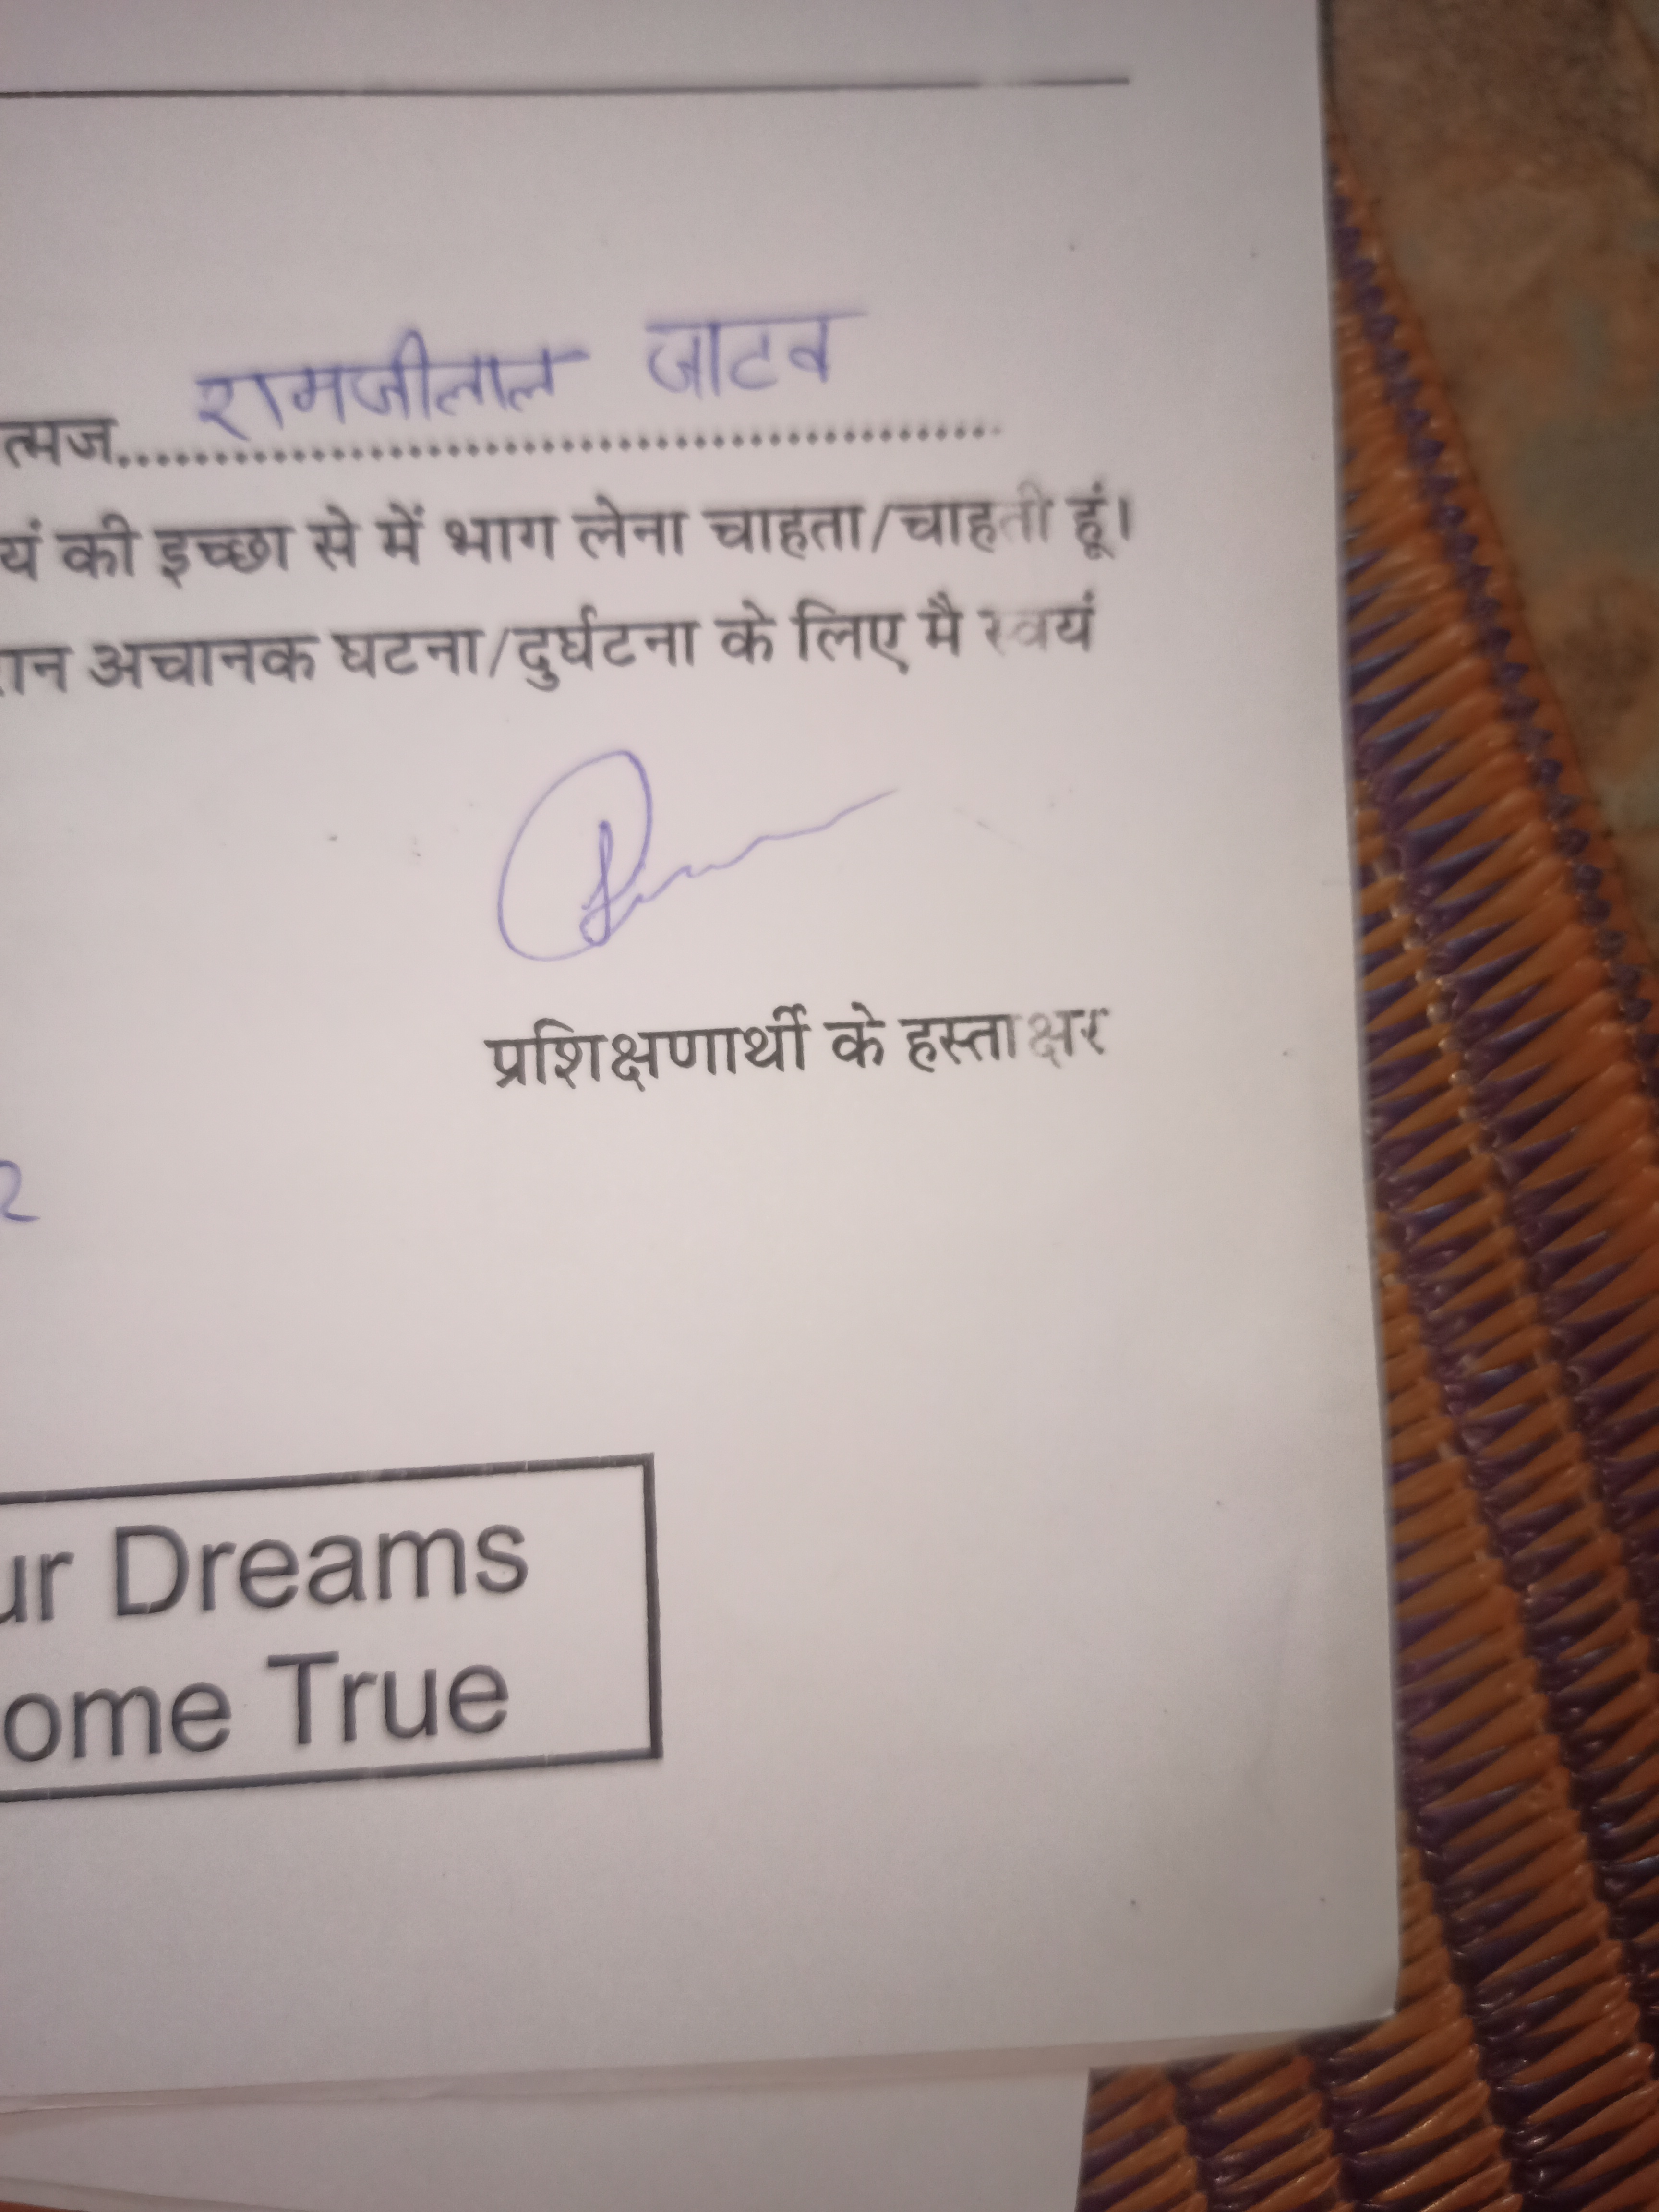 रामजीलाल जाटव
त्मज..................................................
यं की इच्छा से में भाग लेना चाहता/चाहती हूं।
रान अचानक घटना/दुर्घटना के लिए मै स्वयं
प्रशिक्षणार्थी के हस्ताक्षर
2
ur Dreams
ome True